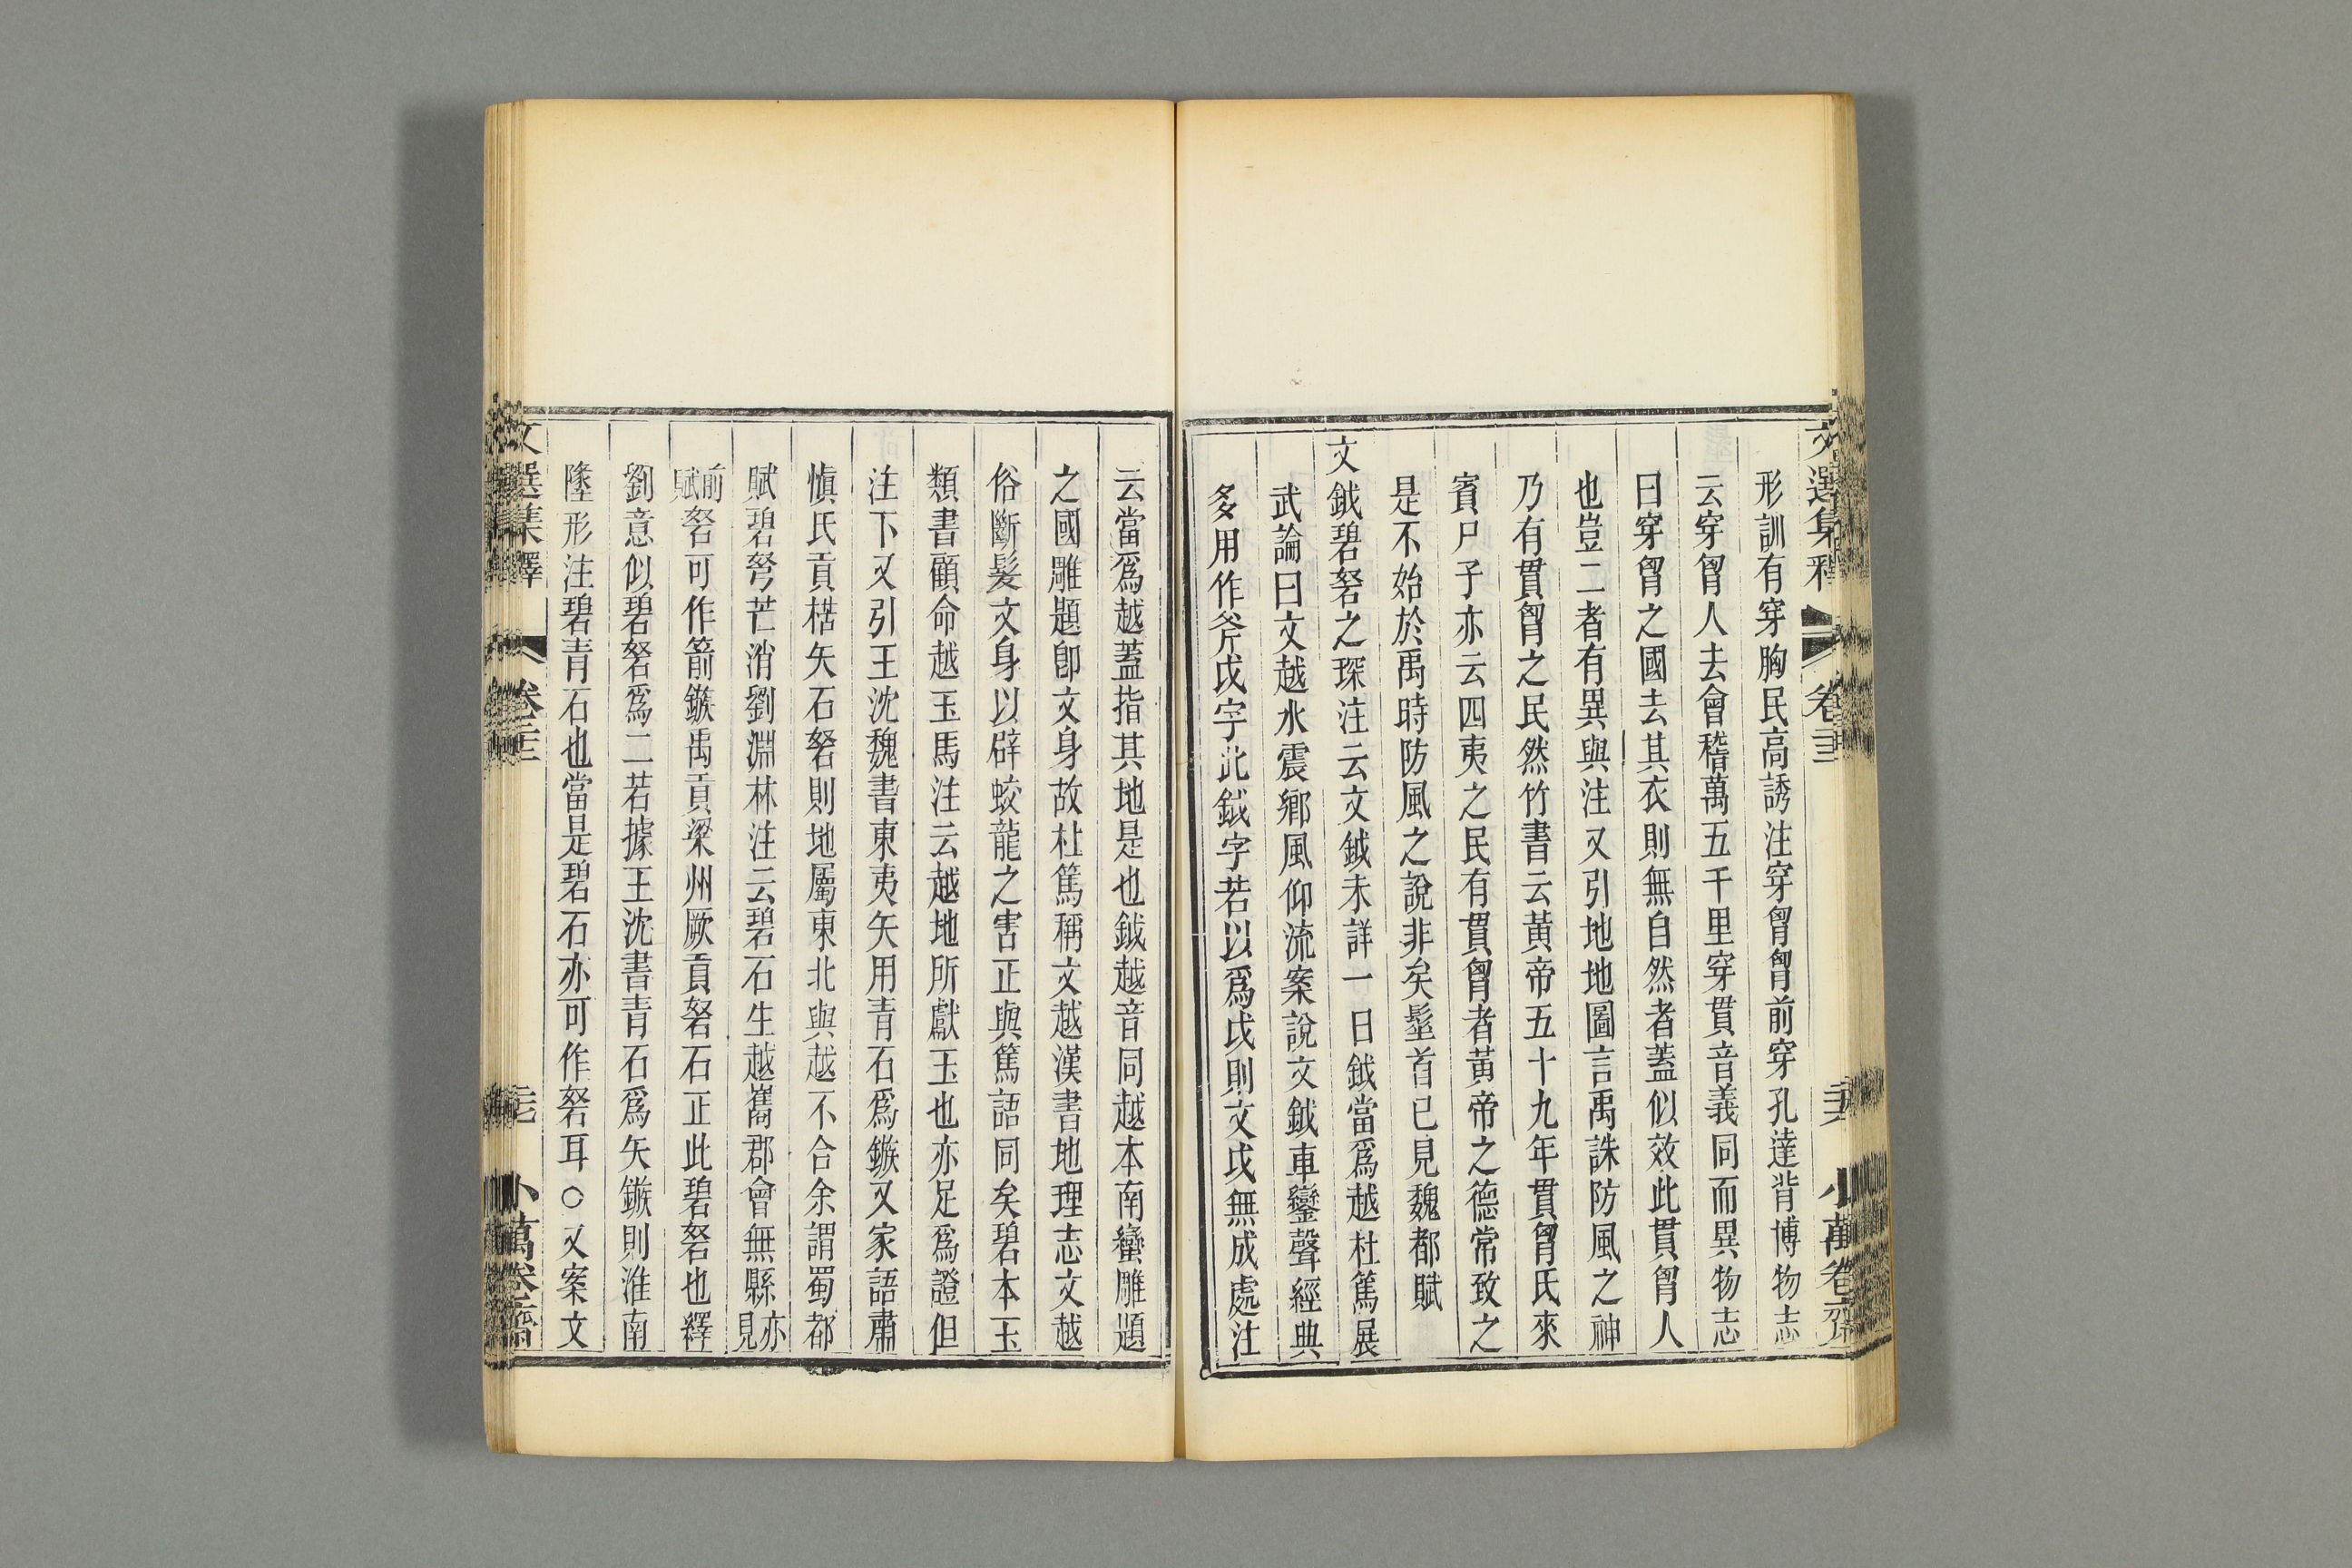 文選集釋 卷二十三 小萬卷齋
形訓有穿胸民高誘注穿胷胷前穿孔達背博物志
云穿胷人去會稽萬五千里穿貫音義同而異物志
曰穿胷之國去其衣則無自然者蓋似效此貫胷人
也豈二者有異與注又引地地圖言禹誅防風之神
乃有貫胷之民然竹書云黃帝五十九年貫胷氏來
賓尸子亦云四夷之民有貫胷者黃帝之德常致之
是不始於禹時防風之說非矣髽首已見魏都賦
文鉞碧砮之琛注云文鉞未詳一曰鉞當爲越杜篤展
武論曰文越水震鄉風仰流案說文鉞車鑾聲經典
多用作斧戉字此鉞字若以爲戉則文戉無成處注
云當爲越蓋指其地是也鉞越音同越本南蠻雕題
之國雕題卽文身故杜篤稱文越漢書地理志文越
俗斷髮文身以辟蛟龍之害正與篤語同矣碧本玉
類書顧命越玉馬注云越地所獻玉也亦足爲證但
注下又引王沈魏書東夷矢用青石爲鏃又家語肅
愼氏貢楛矢石砮則地屬東北與越不合余謂蜀都
賦碧砮芒消劉淵林注云碧石生越嶲郡會無縣亦見
前賦砮可作箭鏃禹貢梁州厥貢砮石正此碧砮也繹
劉意似碧砮爲二若據王沈書青石爲矢鏃則淮南
墬形注碧青石也當是碧石亦可作砮耳○又案文
文選集釋 卷二十三 小萬卷齋